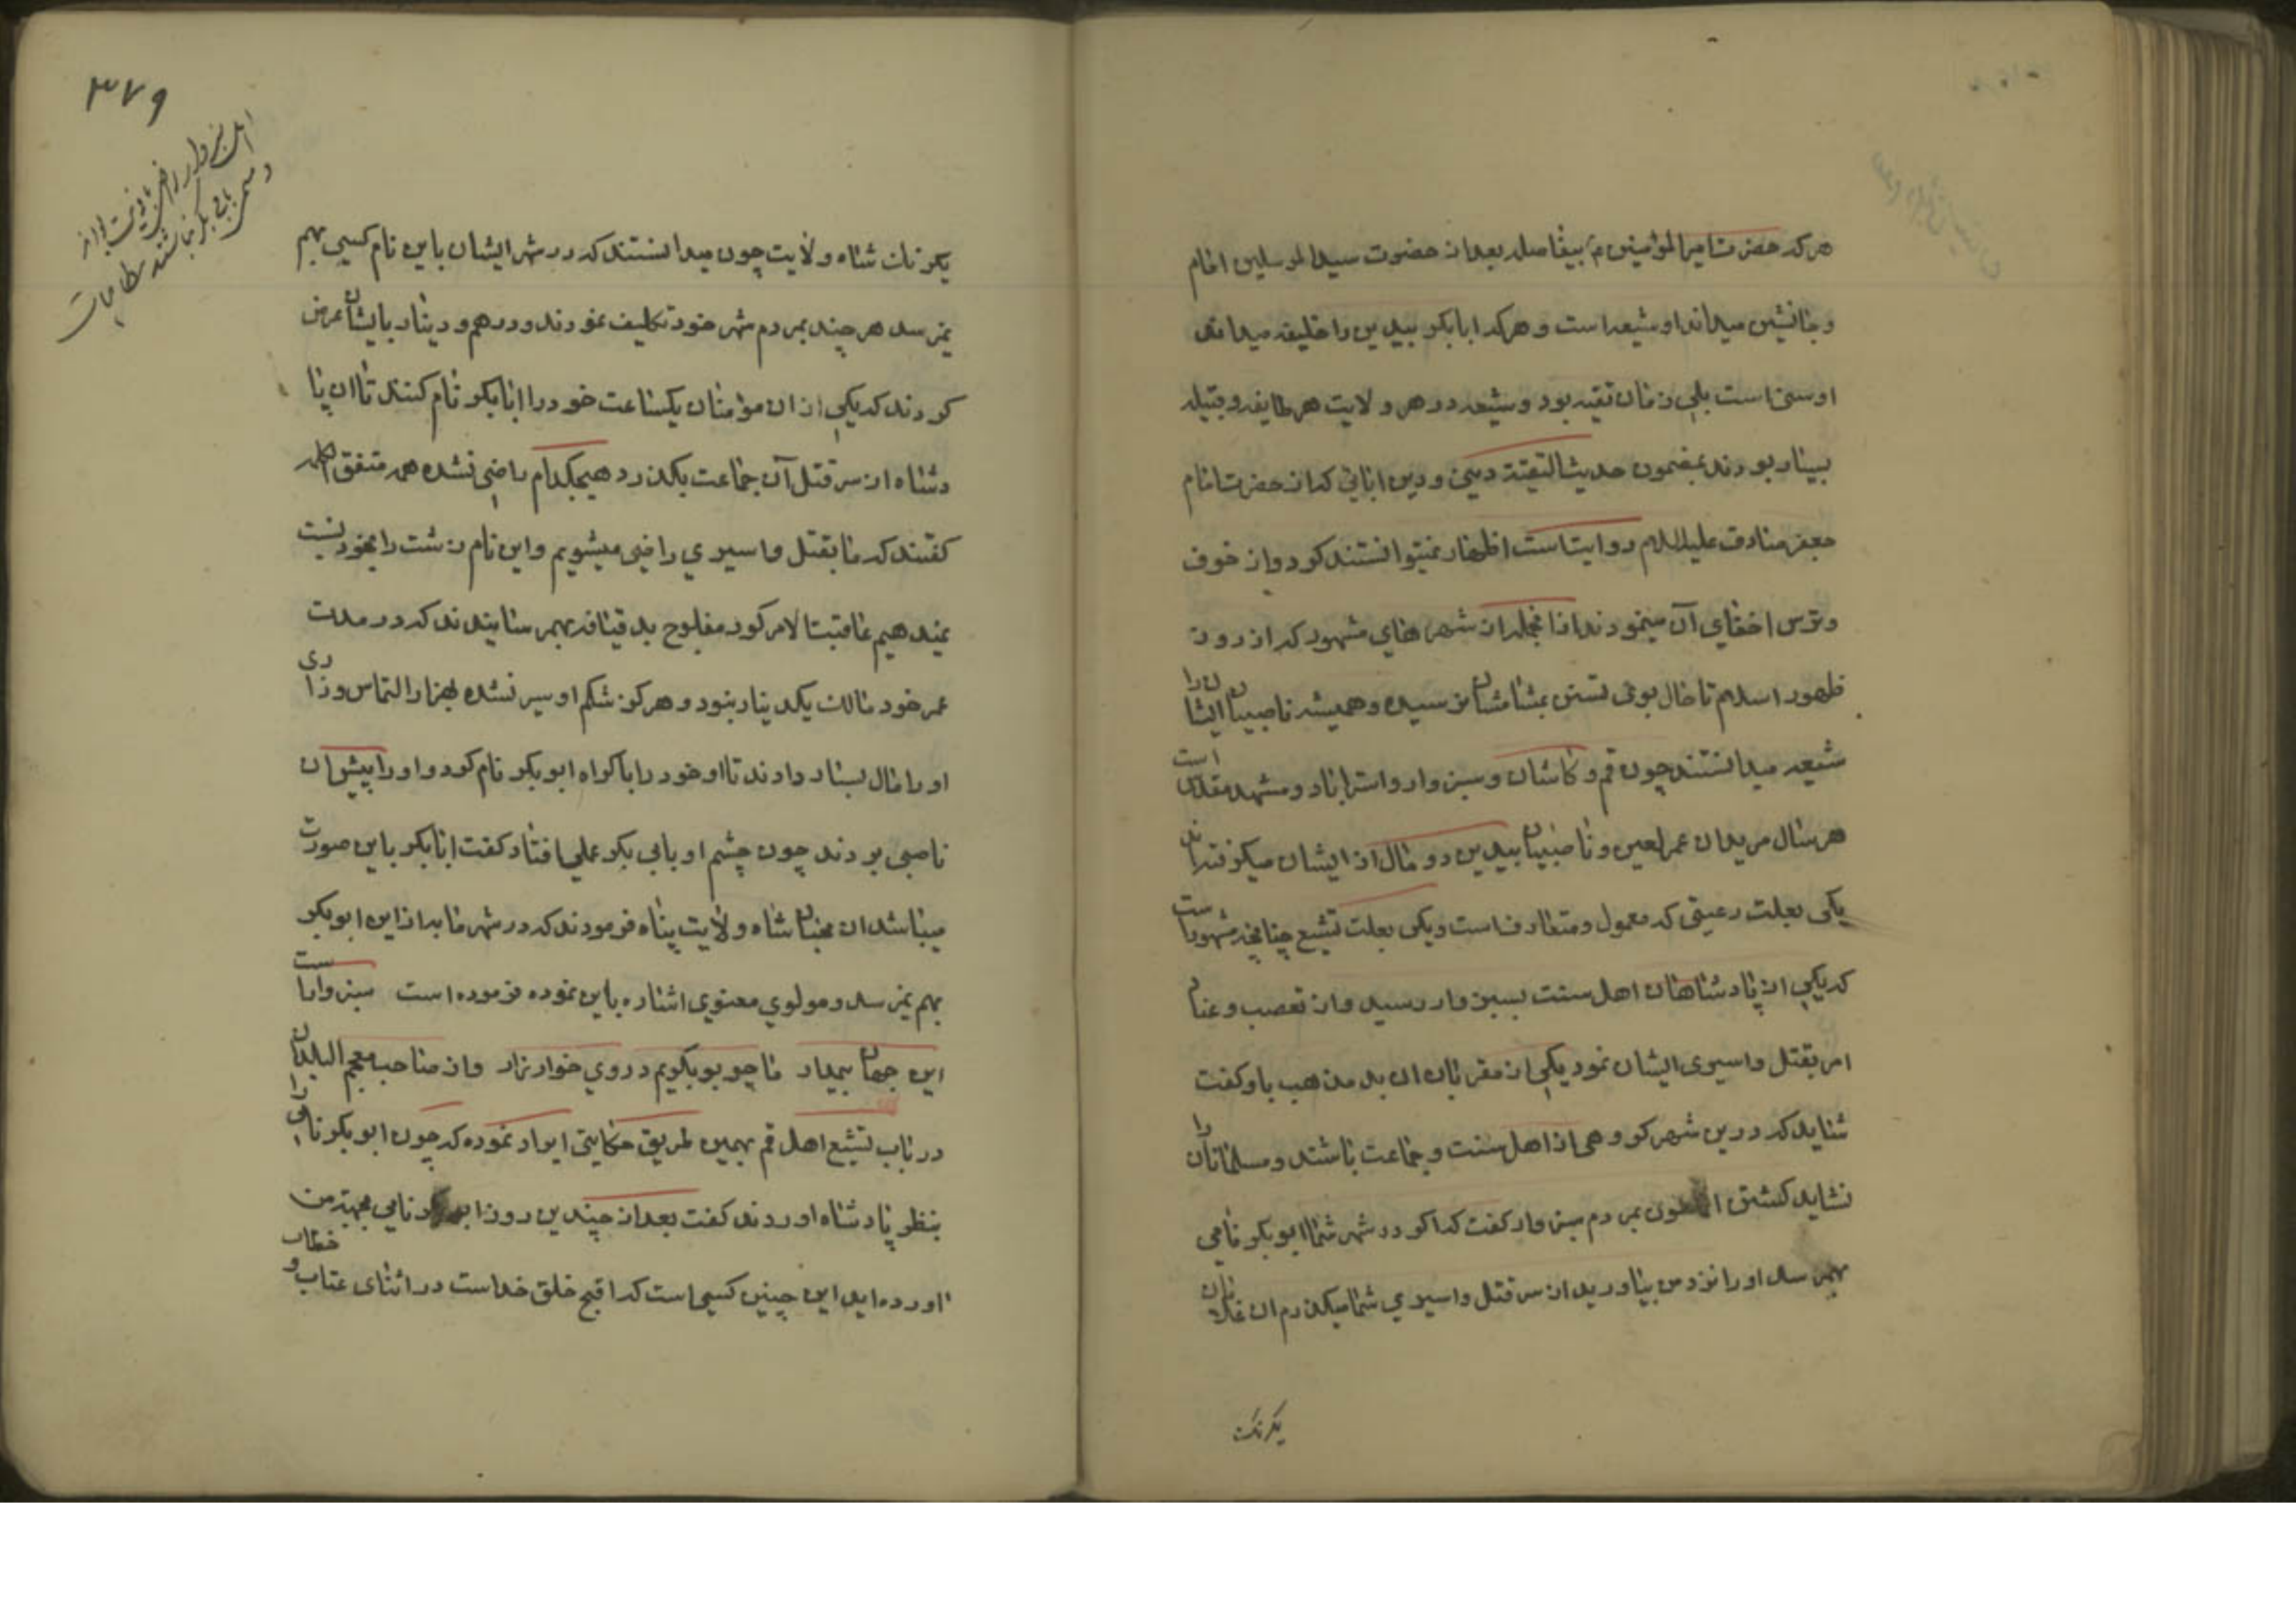 هر که حضرت امیر المؤمنین ع بیفاصله بعد از حضرت سید المرسلین امام
و جانشین میداند او شیعه است و هر که ابابکر بیدین را خلیفه میداند
او سنی است بلی زمان تقیه بود و شیعه در هر ولایت هر طایفه و قبیله
بسیار بودند بمضمون حدیث التقیة دینی و دین ابائی که از حضرت امام
جعفر صادق علیه السلام روایتست اظهار نمیتوانستند کرد و از خوف
و ترس اخفای آن مینمودند از انجمله ان شهر های مشهور که از روز
ظهور اسلام تا حال بوی تسنن بمشامشان نرسیده و همیشه ناصبیان ایشان را
شیعه میدانستند چون قم و کاشان و سبزوار و استراباد و مشهد مقدس است
هر سال مریدان عمر لعین و ناصبیان بیدین دو مال از ایشان میگرفته اند
یکی بعلت رعیتی که معمول و متعارفست و یکی بعلت تشیع چنانچه مشهور است
که یکی از پادشاهان اهل سنت بسبزوار رسید و از تعصب و عناد
امر بقتل و اسیری ایشان نمود یکی از مقربان ان بد مذهب باو گفت
شاید که درین شهر گروهی از اهل سنت و جماعت باشند و مسلمانان را
نشاید کشتن بمردم سبزوار گفت که اگر در شهر شما ابوبکر نامی
بهمرسد او را نزد من بیاورید از سر قتل و اسیری شما میگذرم ان غلامان
یکرنک
۳۷۹
یکرنک شاه ولایت چون میدانستند که در شهر ایشان باین نام کسی بهم
نمیرسد هر چند بمردم شهر خود تکلیف نمودند و درهم و دینار بایشان عرض
کردند که یکی از ان مؤمنان یکساعت خود را ابابکر نام کنند تا ان پا
دشاه از سر قتل آن جماعت بگذرد هیچکدام راضی نشده همه متفق الکلمه
گفتند که ما بقتل و اسیری راضی میشویم و این نام زشت را بخود نسبت
نمیدهیم عاقبت الامر کور مفلوج بد قیافه بهمرسانیدند که در مدت
عمر خود مالک یکدینار نبود و هرگز شکم او سیر نشده بهزار التماس و زاری
او را مال بسیار دادند تا او خود را باکراه ابوبکر نام کرد و او را پیش ان
ناصبی بردند چون چشم او بابی بکر عملی افتاد گفت ابابکر باین صورت
میباشد ان محبان شاه ولایت پناه فرمودند که در شهر ما به از این ابوبکر
بهم نمیرسد و مولوی معنوی اشاره باین نموده فرموده است سبزوار است
این جهان بیمدار ما چو بوبکریم در وی خوار و زار و از صاحب معجم البلدان
در باب تشیع اهل قم بهمین طریق حکایتی ایراد نموده که چون ابوبکر نامی را
بنظر پادشاه اوردند گفت بعد از چندین روز ابوبکر نامی بجهة من
اورده اید این چنین کسی است که اقبح خلق خداست در اثنای عتاب و خطاب